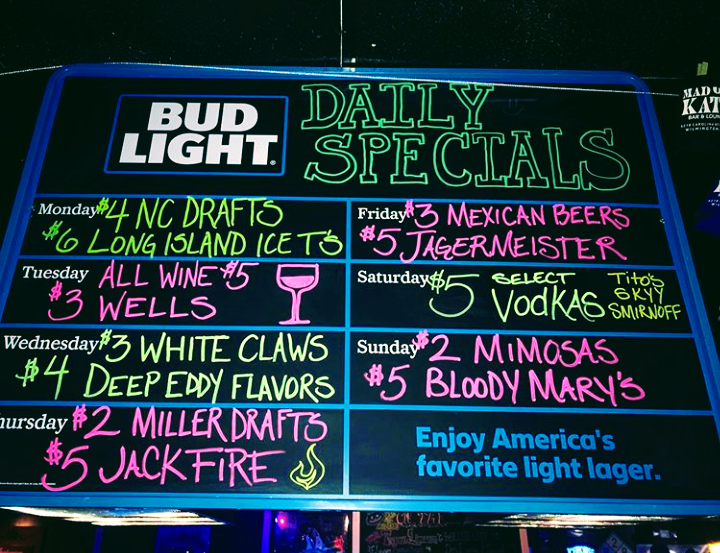 BUD
LIGHT
DAILY
SPECIALS
Monday $4 NC DRAFTS
$6 LONG ISLAND ICE T'S
Tuesday ALL WINE $5
$3 WELLS
Wednesday $3 WHITE CLAWS
$4 DEEP EDDY FLAVORS
hursday $2 MILLER DRAFTS
$5 JACK FIRE
Friday $3 MEXICAN BEERS
$5 JAGERMEISTER
Saturday $5 SELECT VODKAS
Tito's
SKYY
SMIRNOFF
Sunday $2 MIMOSAS
$5 BLOODY MARY'S
Enjoy America's
favorite light lager.
MAD
KAT
BAR & LOUN